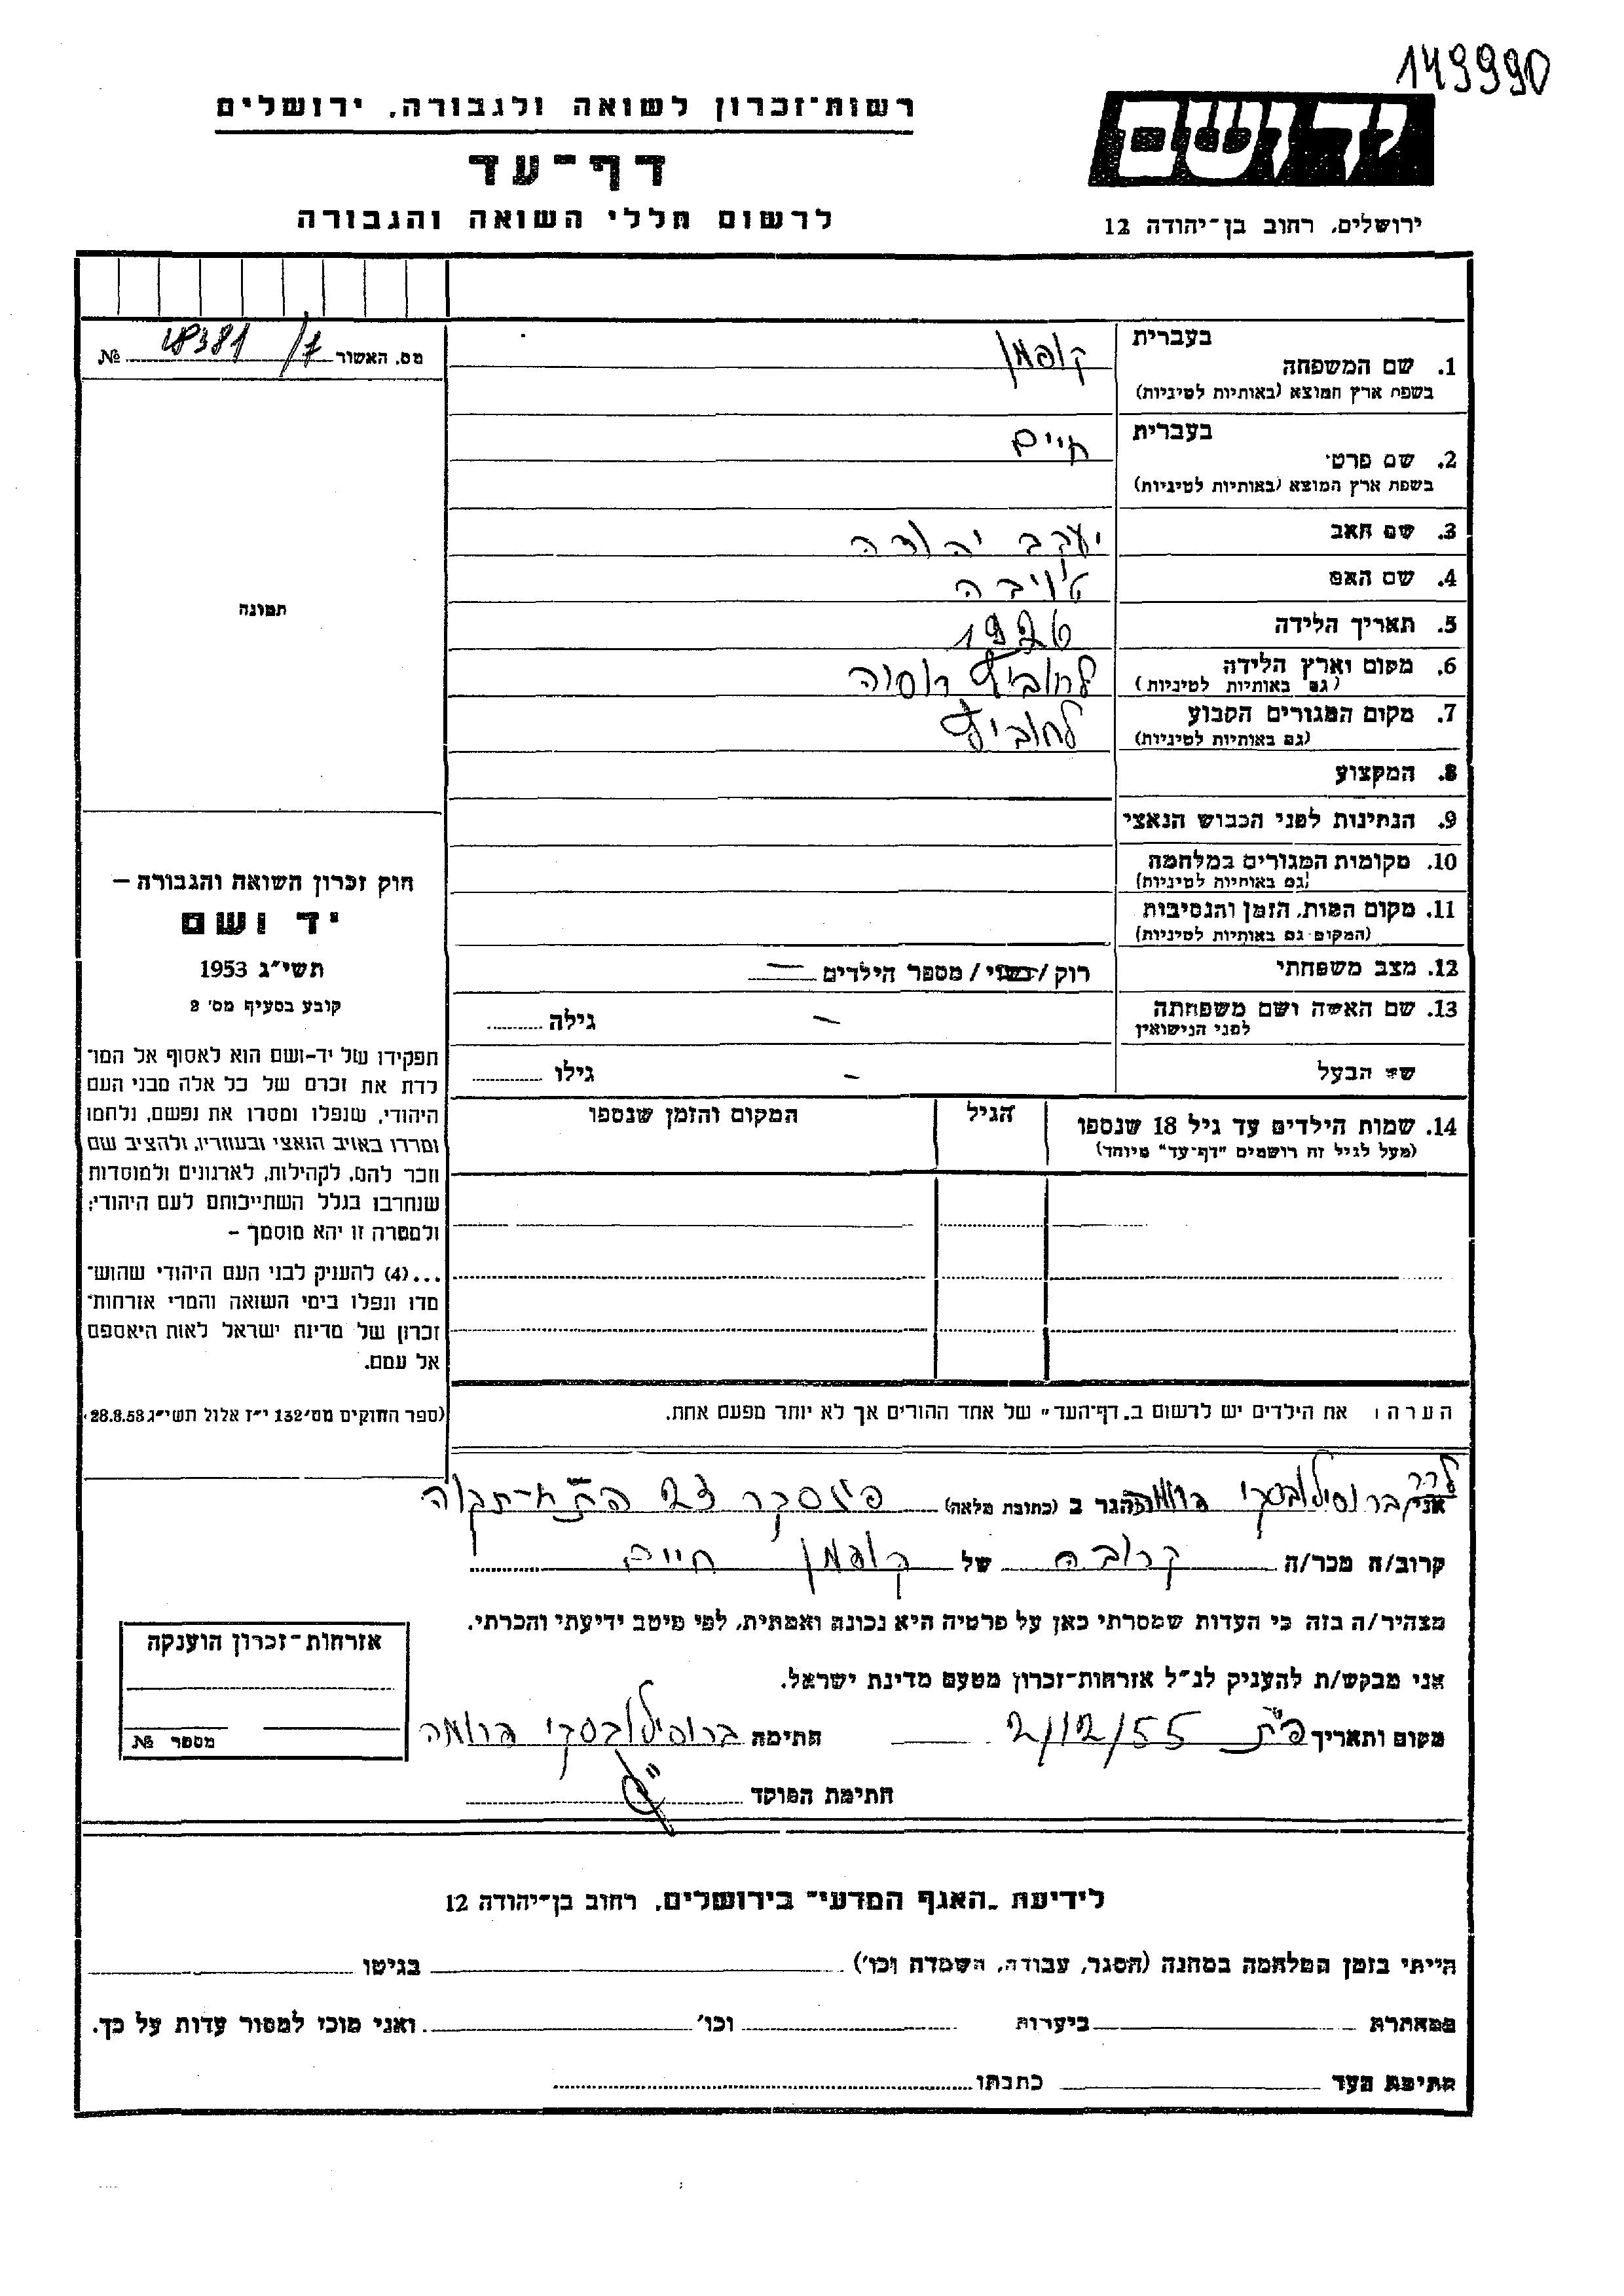 149990
רשות־זכרון לשואה ולגבורה, ירושלים
דף־עד
לרשום חללי השואה והגבורה
ידושם
ירושלים, רחוב בן־יהודה 12
מס. האשור 7/ 18381 №
בעברית
1. שם המשפחה קופמן
בשפת ארץ המוצא (באותיות לטיניות)
בעברית
2. שם פרטי חיים
בשפת ארץ המוצא (באותיות לטיניות)
3. שם האב יעקב יהודה
4. שם האם
5. תאריך הלידה 1926
6. מקום וארץ הלידה רוסיה
(גם באותיות לטיניות)
7. מקום המגורים הקבוע
(גם באותיות לטיניות)
8. המקצוע
9. הנתינות לפני הכבוש הנאצי
10. מקומות המגורים במלחמה
(גם באותיות לטיניות)
11. מקום המות, הזמן והנסיבות
(המקום גם באותיות לטיניות)
12. מצב משפחתי רוק / נשוי / מספר הילדים —
13. שם האשה ושם משפחתה — גילה
לפני הנישואין
שם הבעל — גילו
14. שמות הילדים עד גיל 18 שנספו הגיל המקום והזמן שנספו
(מעל לגיל זה רושמים "דף־עד" מיוחד)
הערה: את הילדים יש לרשום ב"דף־העד" של אחד ההורים אך לא יותר מפעם אחת.
תמונה
חוק זכרון השואה והגבורה –
יד ושם
תשי"ג 1953
קובע בסעיף מס' 2
תפקידו של יד-ושם הוא לאסוף אל המו־
לדת את זכרם של כל אלה מבני העם
היהודי, שנפלו ומסרו את נפשם, נלחמו
ומרדו באויב הנאצי ובעוזריו, ולהציב שם
וזכר להם, לקהילות, לארגונים ולמוסדות
שנחרבו בגלל השתייכותם לעם היהודי;
ולמטרה זו יהא מוסמך –
...(4) להעניק לבני העם היהודי שהוש־
מדו ונפלו בימי השואה והמרי אזרחות־
זכרון של מדינת ישראל לאות היאספם
אל עמם.
(ספר החוקים מס' 132 י"ז אלול תשי"ג 28.8.53)
אני ברוסילובסקי נחומה הגר ב (כתובת מלאה) פינסקר 23 פתח-תקוה
קרוב/ה מכר/ה קרובה של קופמן חיים
מצהיר/ה בזה כי העדות שמסרתי כאן על פרטיה היא נכונה ואמתית, לפי מיטב ידיעתי והכרתי.
אני מבקש/ת להעניק לנ"ל אזרחות־זכרון מטעם מדינת ישראל.
מקום ותאריך פ"ת 2/12/55 חתימה ברוסילובסקי נחומה
חתימת הפוקד
אזרחות־זכרון הוענקה
מספר №
לידיעת "האגף המדעי" בירושלים, רחוב בן־יהודה 12
הייתי בזמן המלחמה במחנה (הסגר, עבודה, השמדה וכו') בגיטו
במחתרת ביערות וכו' ואני מוכן למסור עדות על כך.
חתימת העד כתבתו